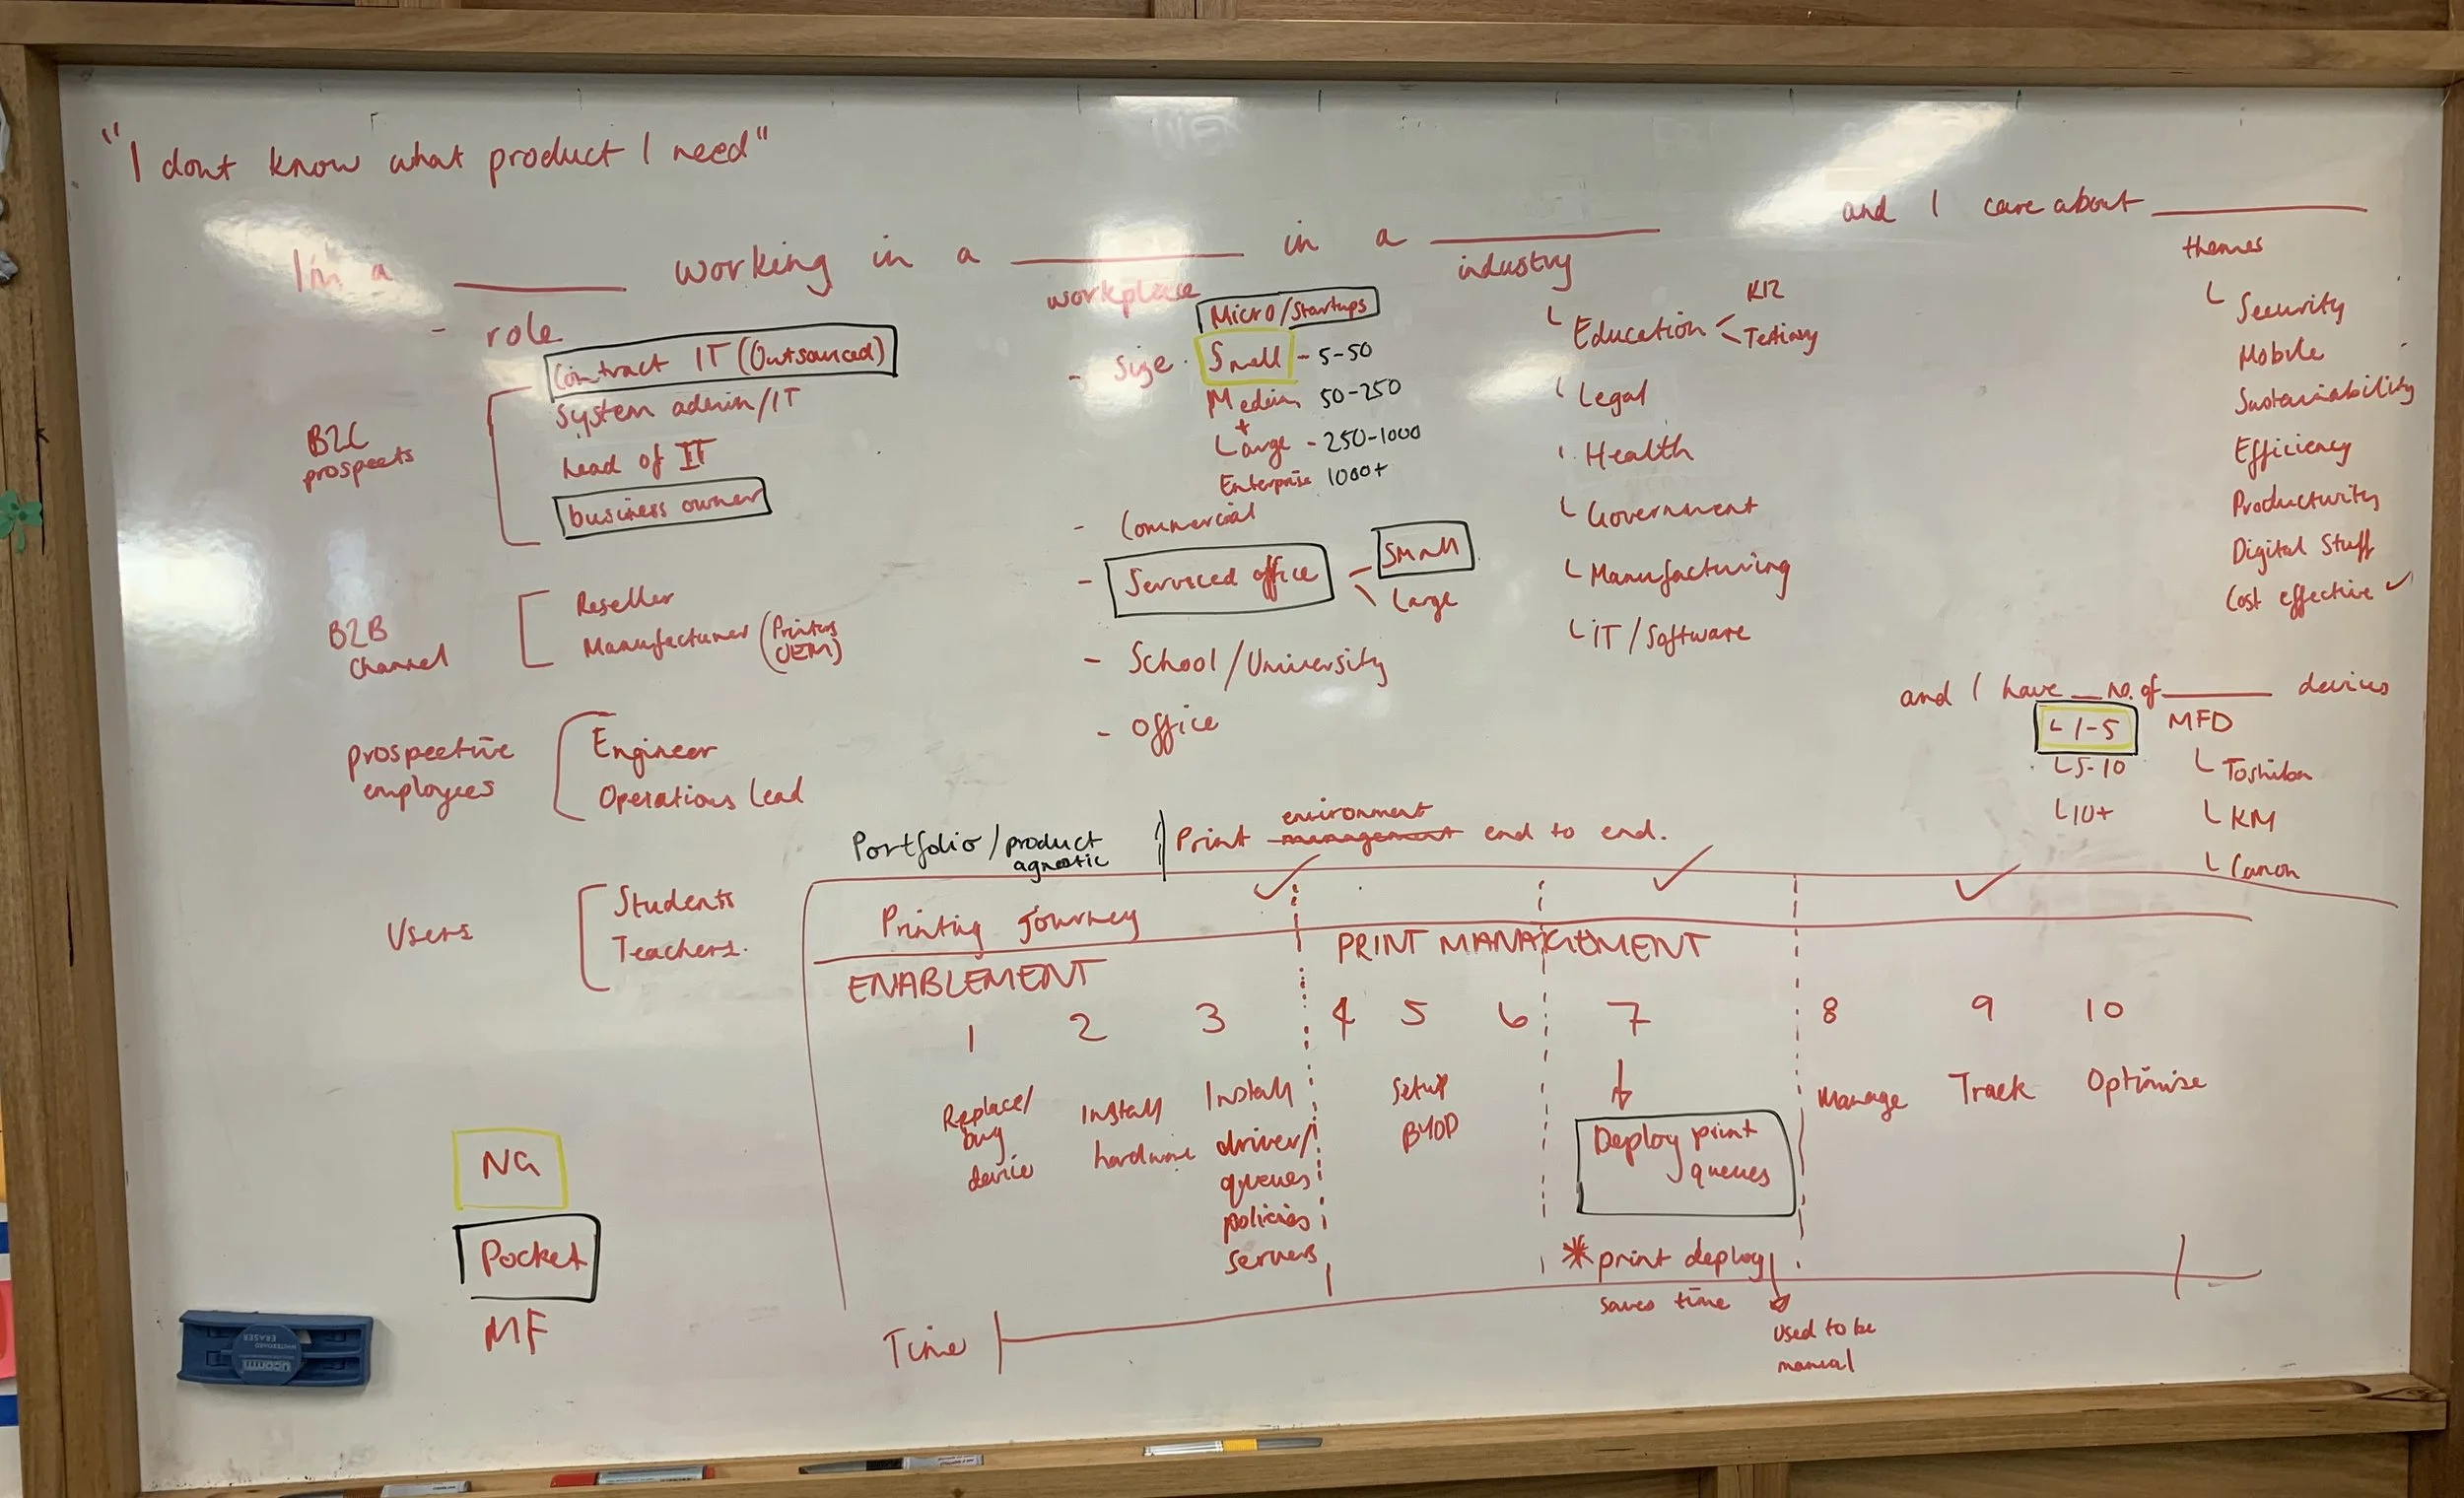 "I dont know what product I need"
I'm a ______ working in a ______ in a ______ and I care about ______
- role
Contract IT (Outsourced)
System admin/IT
head of IT
business owner
B2C
prospects
B2B
Channel
Reseller
Manufacturer (Printers
OEM)
prospective
employees
Engineer
Operations Lead
Users
Students
Teachers.
workplace
Micro/Startups
- Size. Small - 5-50
Medium 50-250
+
Large - 250-1000
Enterprise 1000+
- Commercial
- Serviced office
Small
Large
- School/University
- Office
industry
Education
K12
Tertiary
Legal
Health
Government
Manufacturing
IT/Software
themes
Security
Mobile
Sustainability
Efficiency
Productivity
Digital Stuff
Cost effective ✓
and I have __ no. of ______ devices
1-5
5-10
10+
MFD
Toshiba
KM
Canon
Portfolio/product
agnostic
environment
Print management end to end.
Printing journey
ENABLEMENT
PRINT MANAGEMENT
1 2 3 4 5 6 7 8 9 10
Replace/
buy
device
Install
hardware
Install
driver/
queues
policies
servers
Setup
BYOD
Deploy print
queues
* print deploy
saves time
used to be
manual
Manage
Track
Optimise
Time
NG
Pocket
MF
ERASER
WHITEBOARD